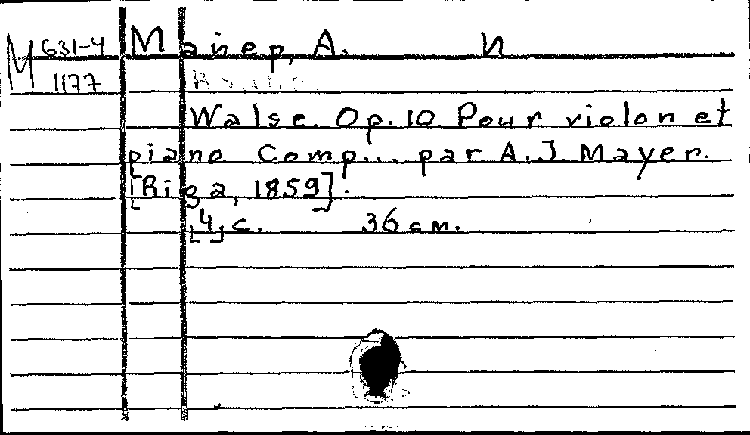 М 631-4 Майер, А. И
1177
Walse. Op. 10 Pour violon et
piano Comp... par A. J. Mayer.
[Riga, 1859].
[4] c. 36 см.